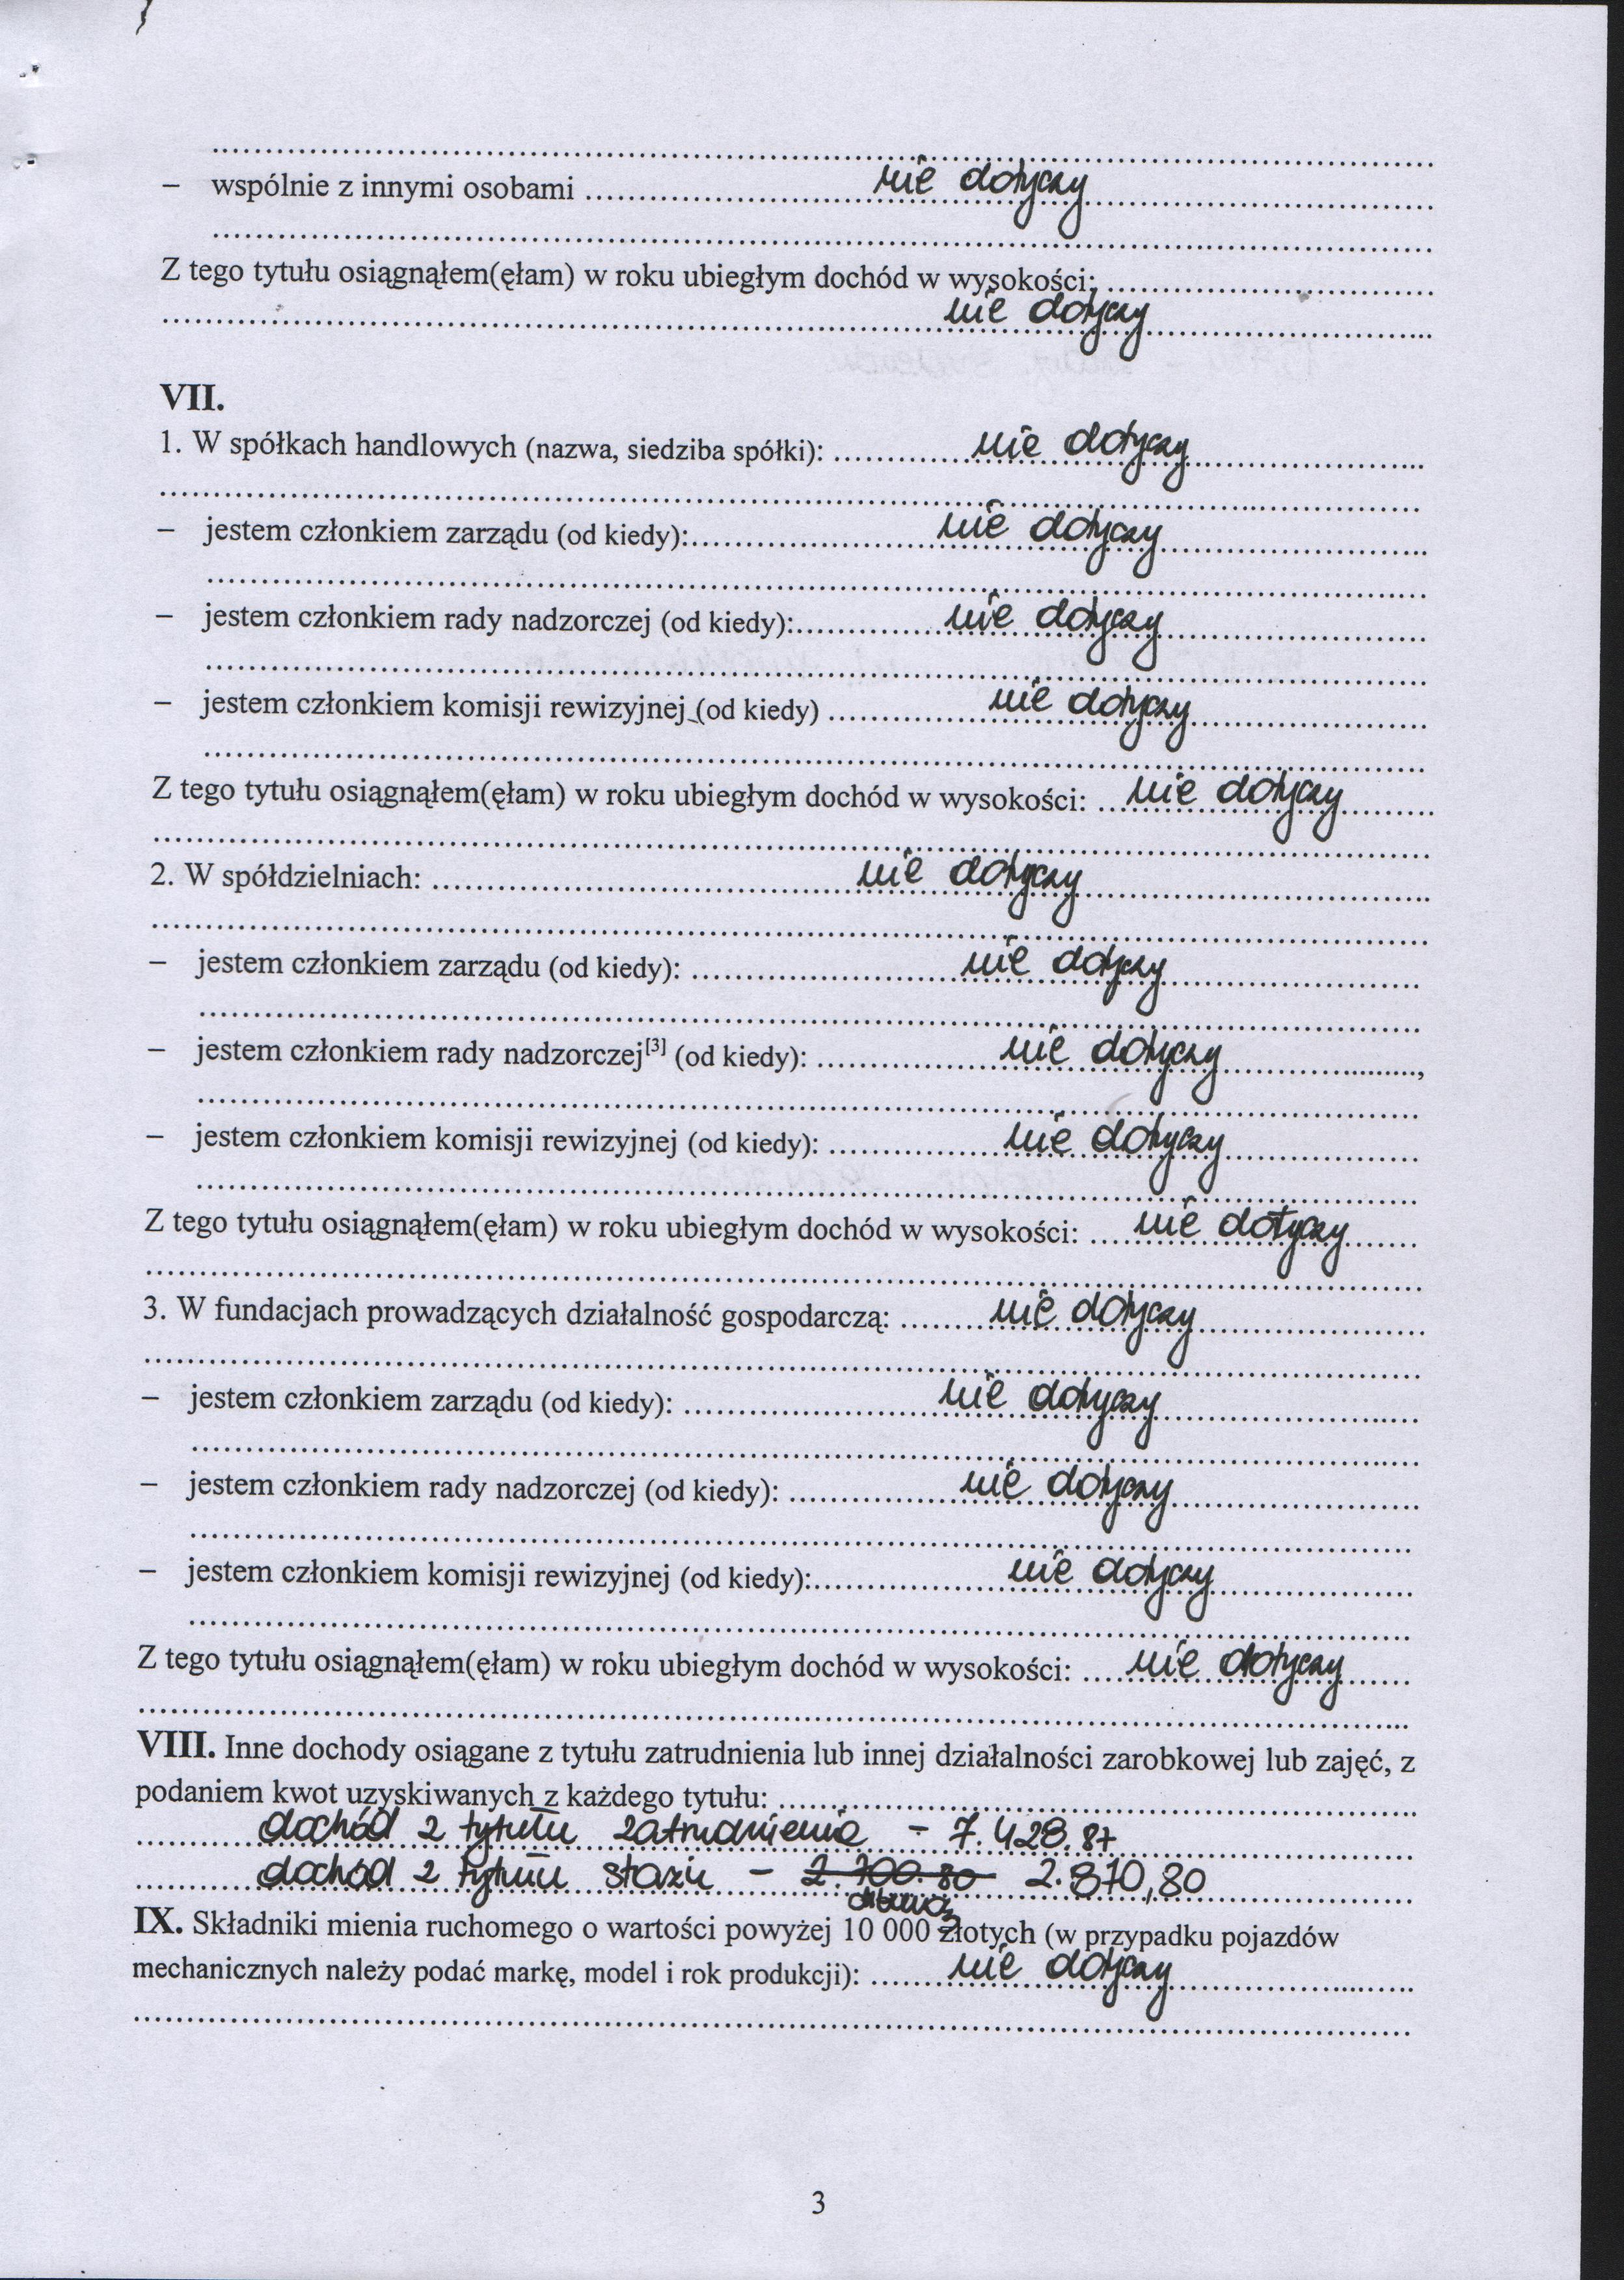 – wspólnie z innymi osobami ........ nie dotyczy ........
Z tego tytułu osiągnąłem(ęłam) w roku ubiegłym dochód w wysokości: ........
nie dotyczy
VII.
1. W spółkach handlowych (nazwa, siedziba spółki): ........ nie dotyczy ........
– jestem członkiem zarządu (od kiedy):........ nie dotyczy ........
– jestem członkiem rady nadzorczej (od kiedy):........ nie dotyczy ........
– jestem członkiem komisji rewizyjnej (od kiedy) ........ nie dotyczy ........
Z tego tytułu osiągnąłem(ęłam) w roku ubiegłym dochód w wysokości: ... nie dotyczy ........
2. W spółdzielniach: ........ nie dotyczy ........
– jestem członkiem zarządu (od kiedy): ........ nie dotyczy ........
– jestem członkiem rady nadzorczej[3] (od kiedy): ........ nie dotyczy ........,
– jestem członkiem komisji rewizyjnej (od kiedy): ........ nie dotyczy ........
Z tego tytułu osiągnąłem(ęłam) w roku ubiegłym dochód w wysokości: .... nie dotyczy ........
3. W fundacjach prowadzących działalność gospodarczą: ........ nie dotyczy ........
– jestem członkiem zarządu (od kiedy): ........ nie dotyczy ........
– jestem członkiem rady nadzorczej (od kiedy): ........ nie dotyczy ........
– jestem członkiem komisji rewizyjnej (od kiedy):........ nie dotyczy ........
Z tego tytułu osiągnąłem(ęłam) w roku ubiegłym dochód w wysokości: .... nie dotyczy ........
VIII. Inne dochody osiągane z tytułu zatrudnienia lub innej działalności zarobkowej lub zajęć, z
podaniem kwot uzyskiwanych z każdego tytułu: ........
dochód z tytułu zatrudnienia - 7.428.87
dochód z tytułu stażu - 2.700.80 2.870,80
IX. Składniki mienia ruchomego o wartości powyżej 10 000 złotych (w przypadku pojazdów
mechanicznych należy podać markę, model i rok produkcji): ........ nie dotyczy ........
3